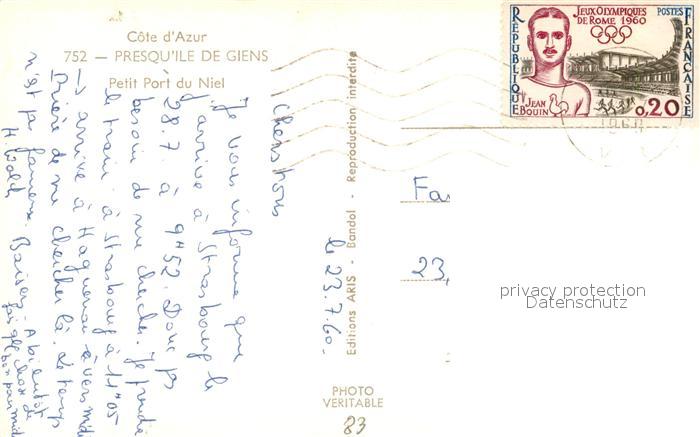 Côte d'Azur
752 — PRESQU'ILE DE GIENS
Petit Port du Niel
RÉPUBLIQUE
FRANÇAISE
JEUX OLYMPIQUES
DE ROME 1960
POSTES
JEAN
BOUIN
0,20
196
Chers tous
Je vous informe que
j'arrive à Strasbourg le
28.7. à 9H52. Donc pas
besoin de me chercher. Je prendrai
le train à Strasbourg à 11H05
→ arrive à Haguenau vers midi
Prière de me chercher là. Le temps
n'est pas fameux. Baisers. A bientôt
H.
le 23.7.60.
Editions ARIS - Bandol - Reproduction interdite
Fa
23,
privacy protection
Datenschutz
PHOTO
VERITABLE
83